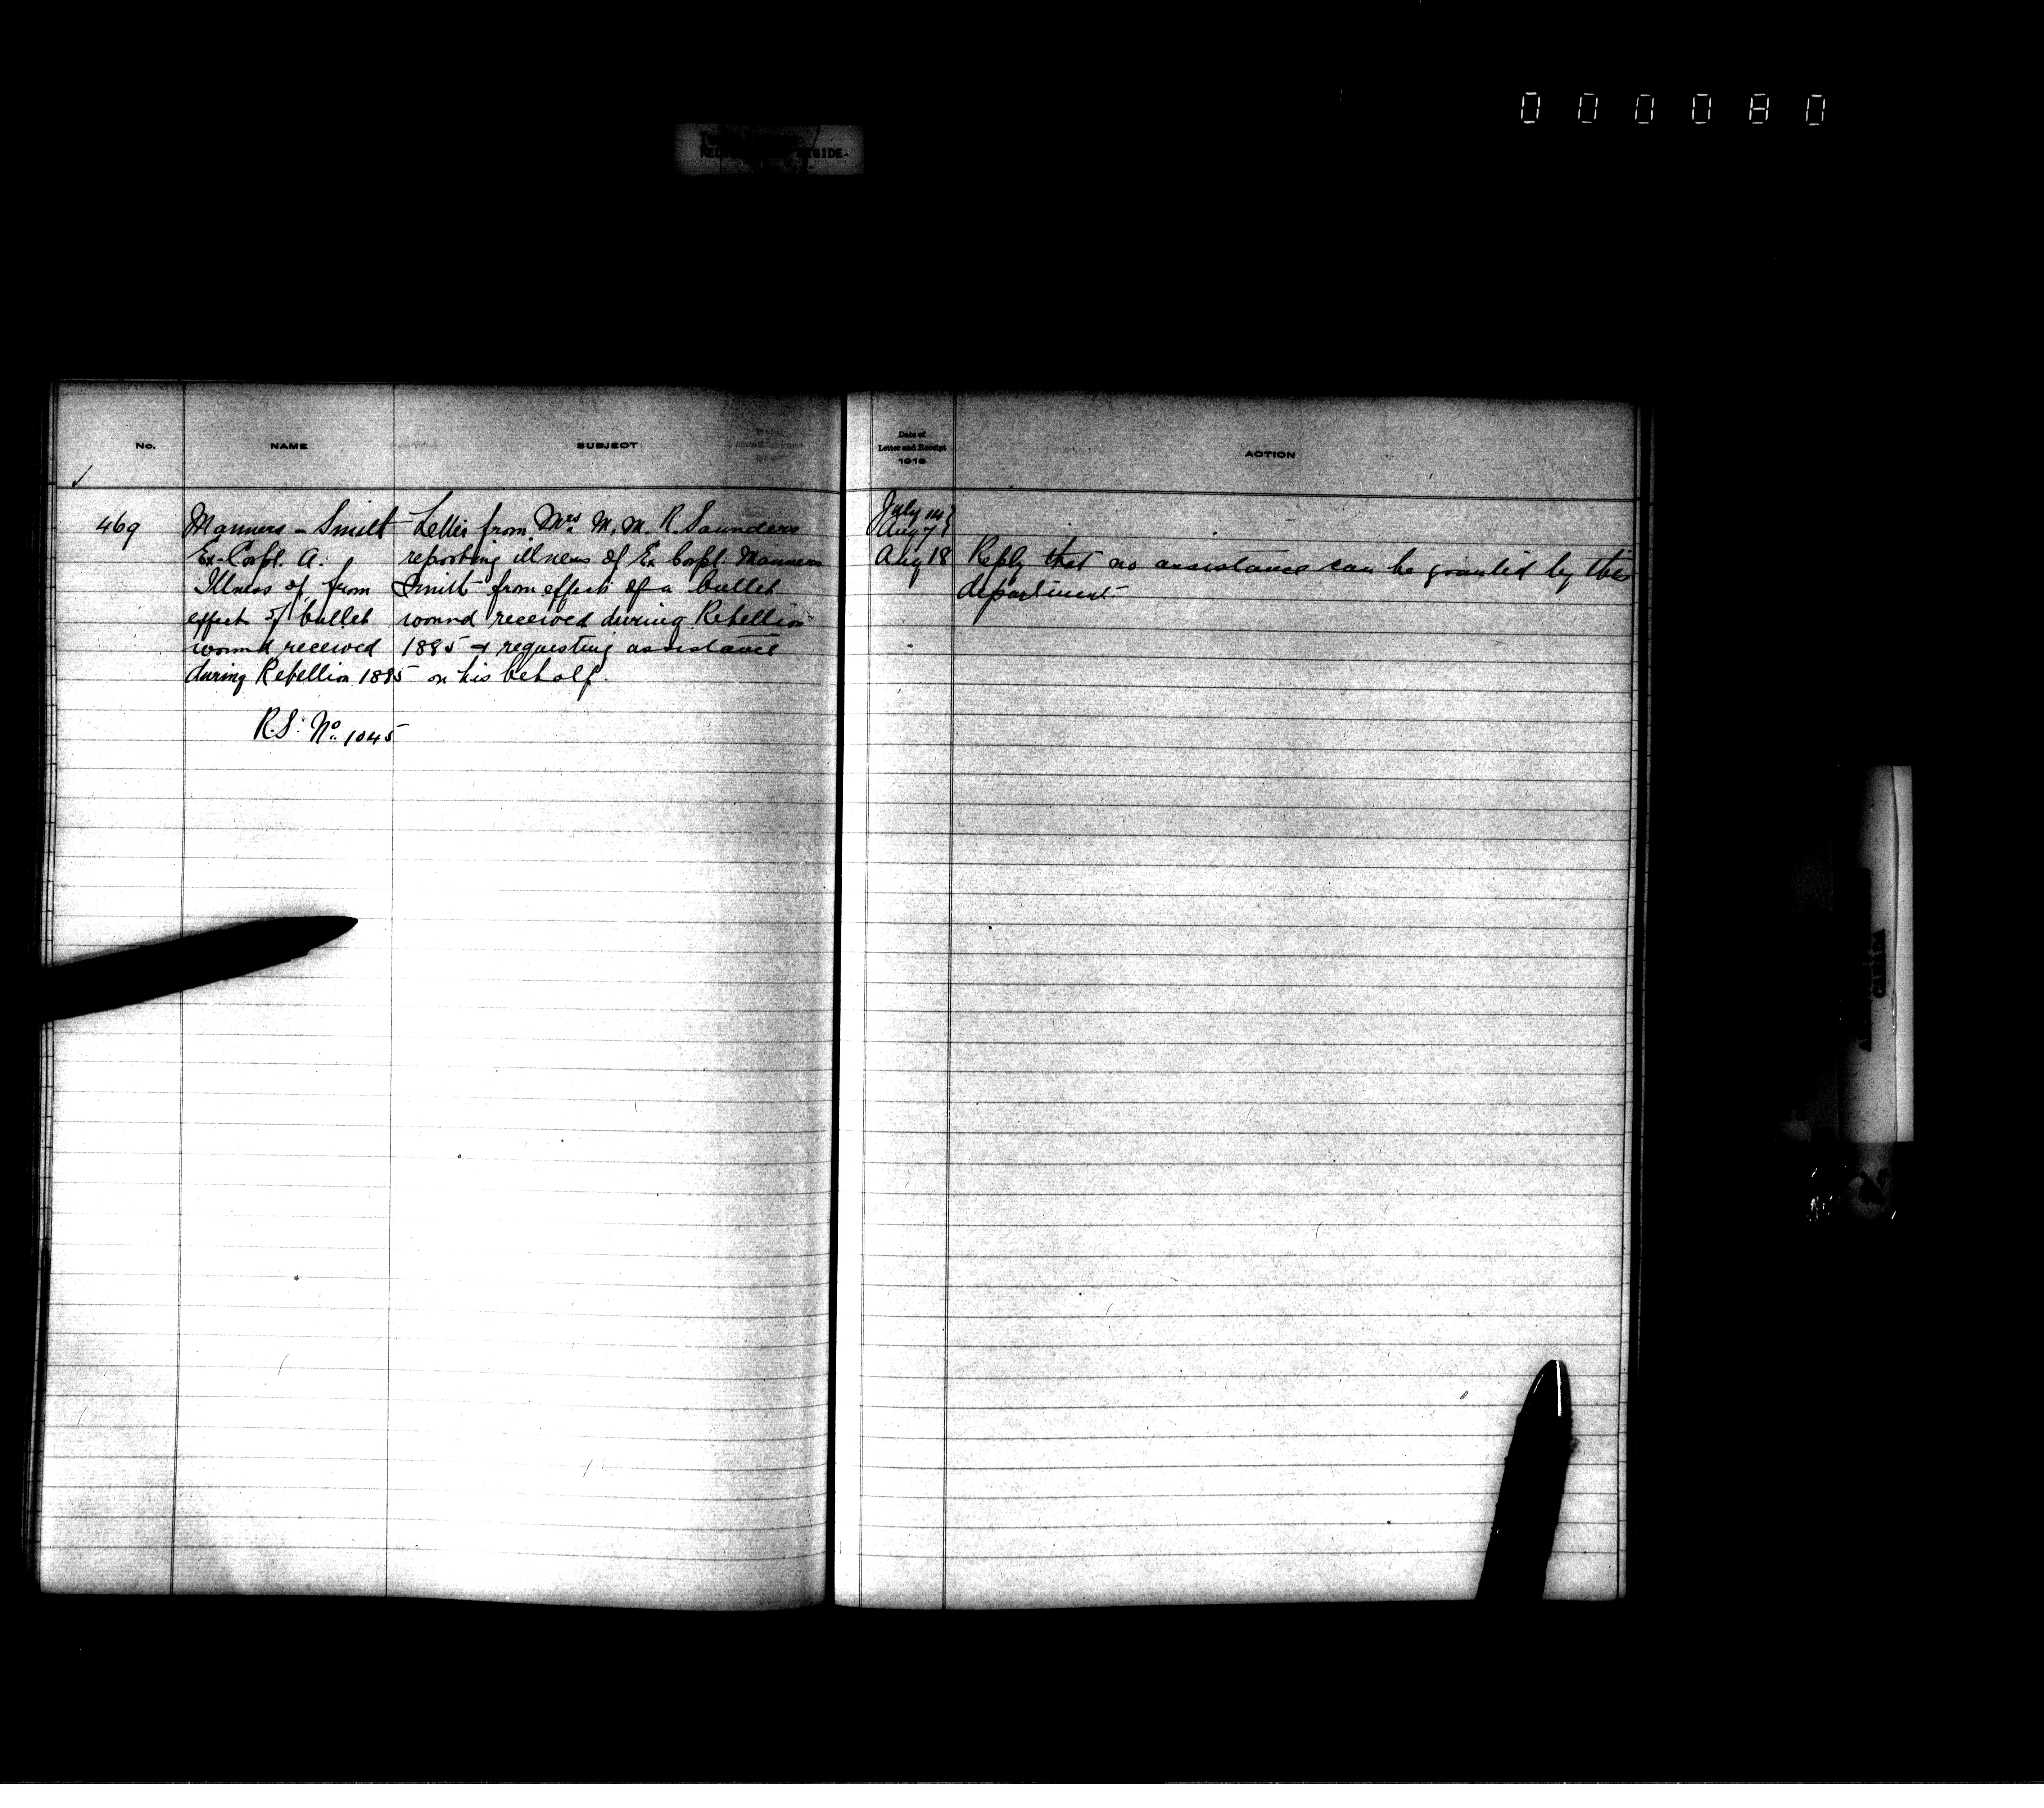 000080
No.
NAME
SUBJECT
469
Manners - Smith
Ex-Corpl. A.
Illness of, from
effects of bullet
wound received
during Rebellion 1885
R.S. No. 1045
Letter from Mrs M. M. R. Saunders
reporting illness of Ex Corpl. Manners
Smith from effects of a bullet
wound received during Rebellion
1885 & requesting assistance
on his behalf.
Date of
Letter and Receipt
ACTION
July 14
Aug 7
Aug 18
Reply that no assistance can be granted by this
department